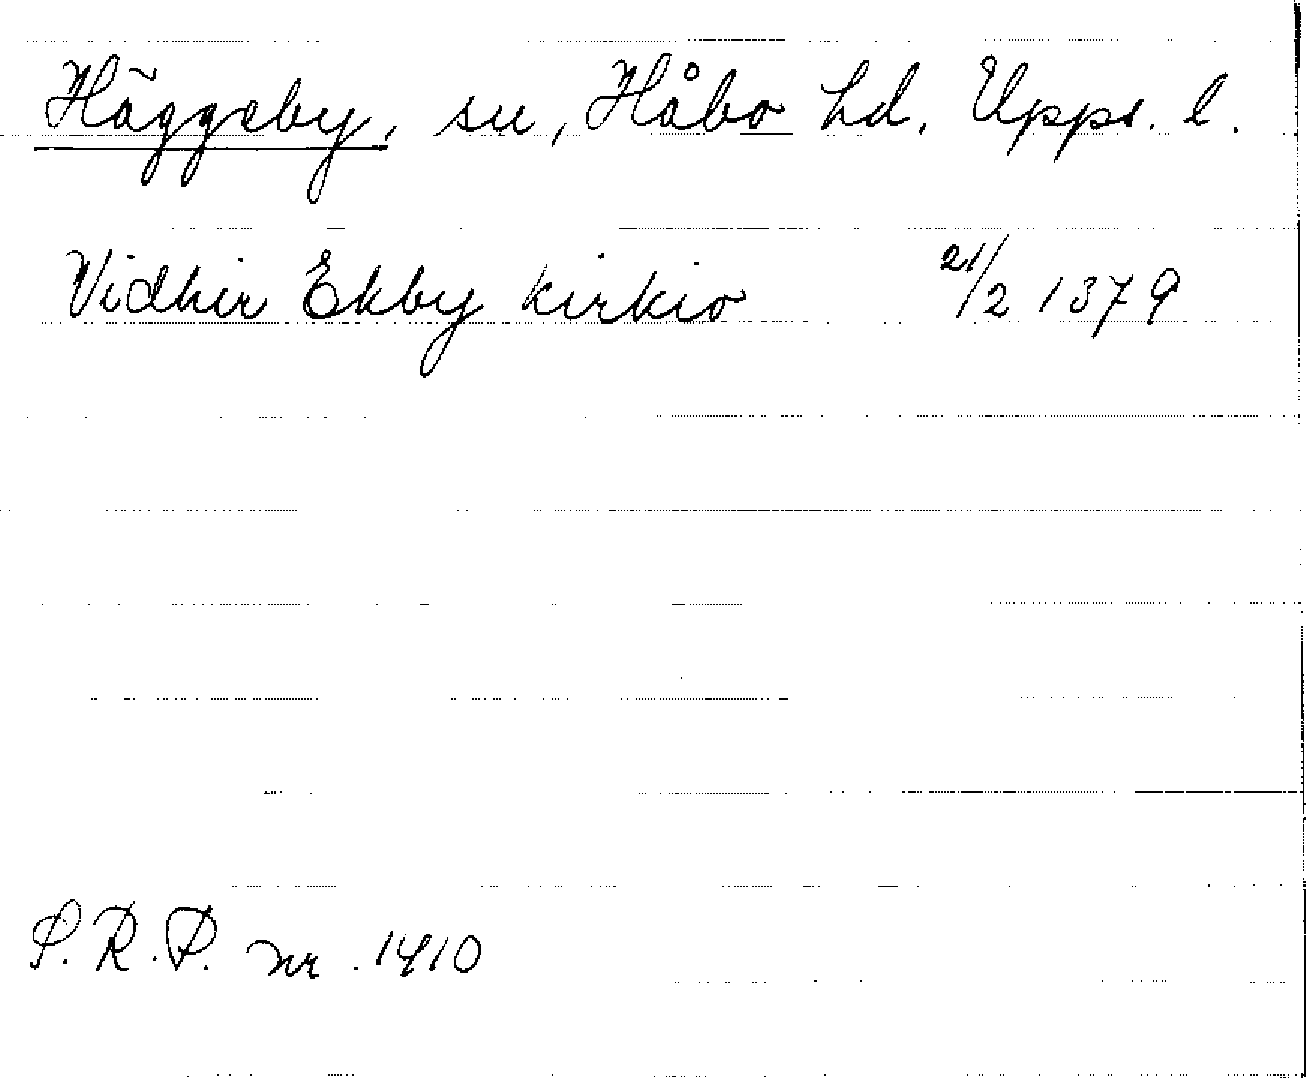 Häggeby, sn, Håbo hd. Upps. l.
Vidhir Ekby kirkio 21/2 1379
S.R.P. nr. 1410